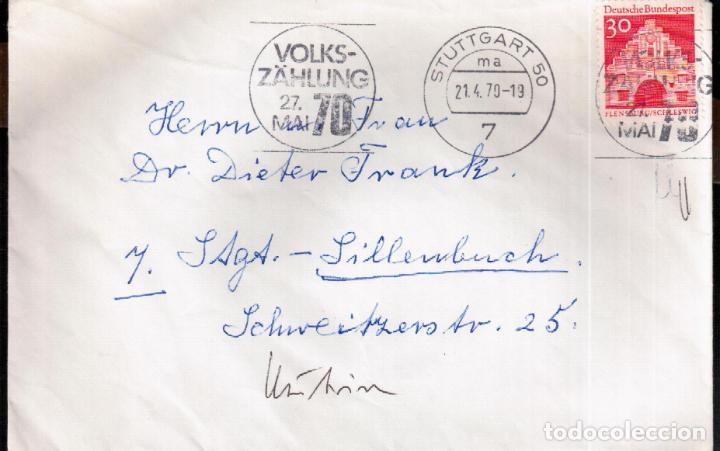 VOLKS-
ZÄHLUNG
27.
MAI 70
STUTTGART 50
ma
21.4.70-19
7
Deutsche Bundespost
30
FLENSBURG/SCHLESWIG
VOLKS-
ZÄHLUNG
27.
MAI 70
Herrn u. Frau
Dr. Dieter Frank.
7. Stgt.-Sillenbuch.
Schweitzerstr. 25.
todocoleccion.net